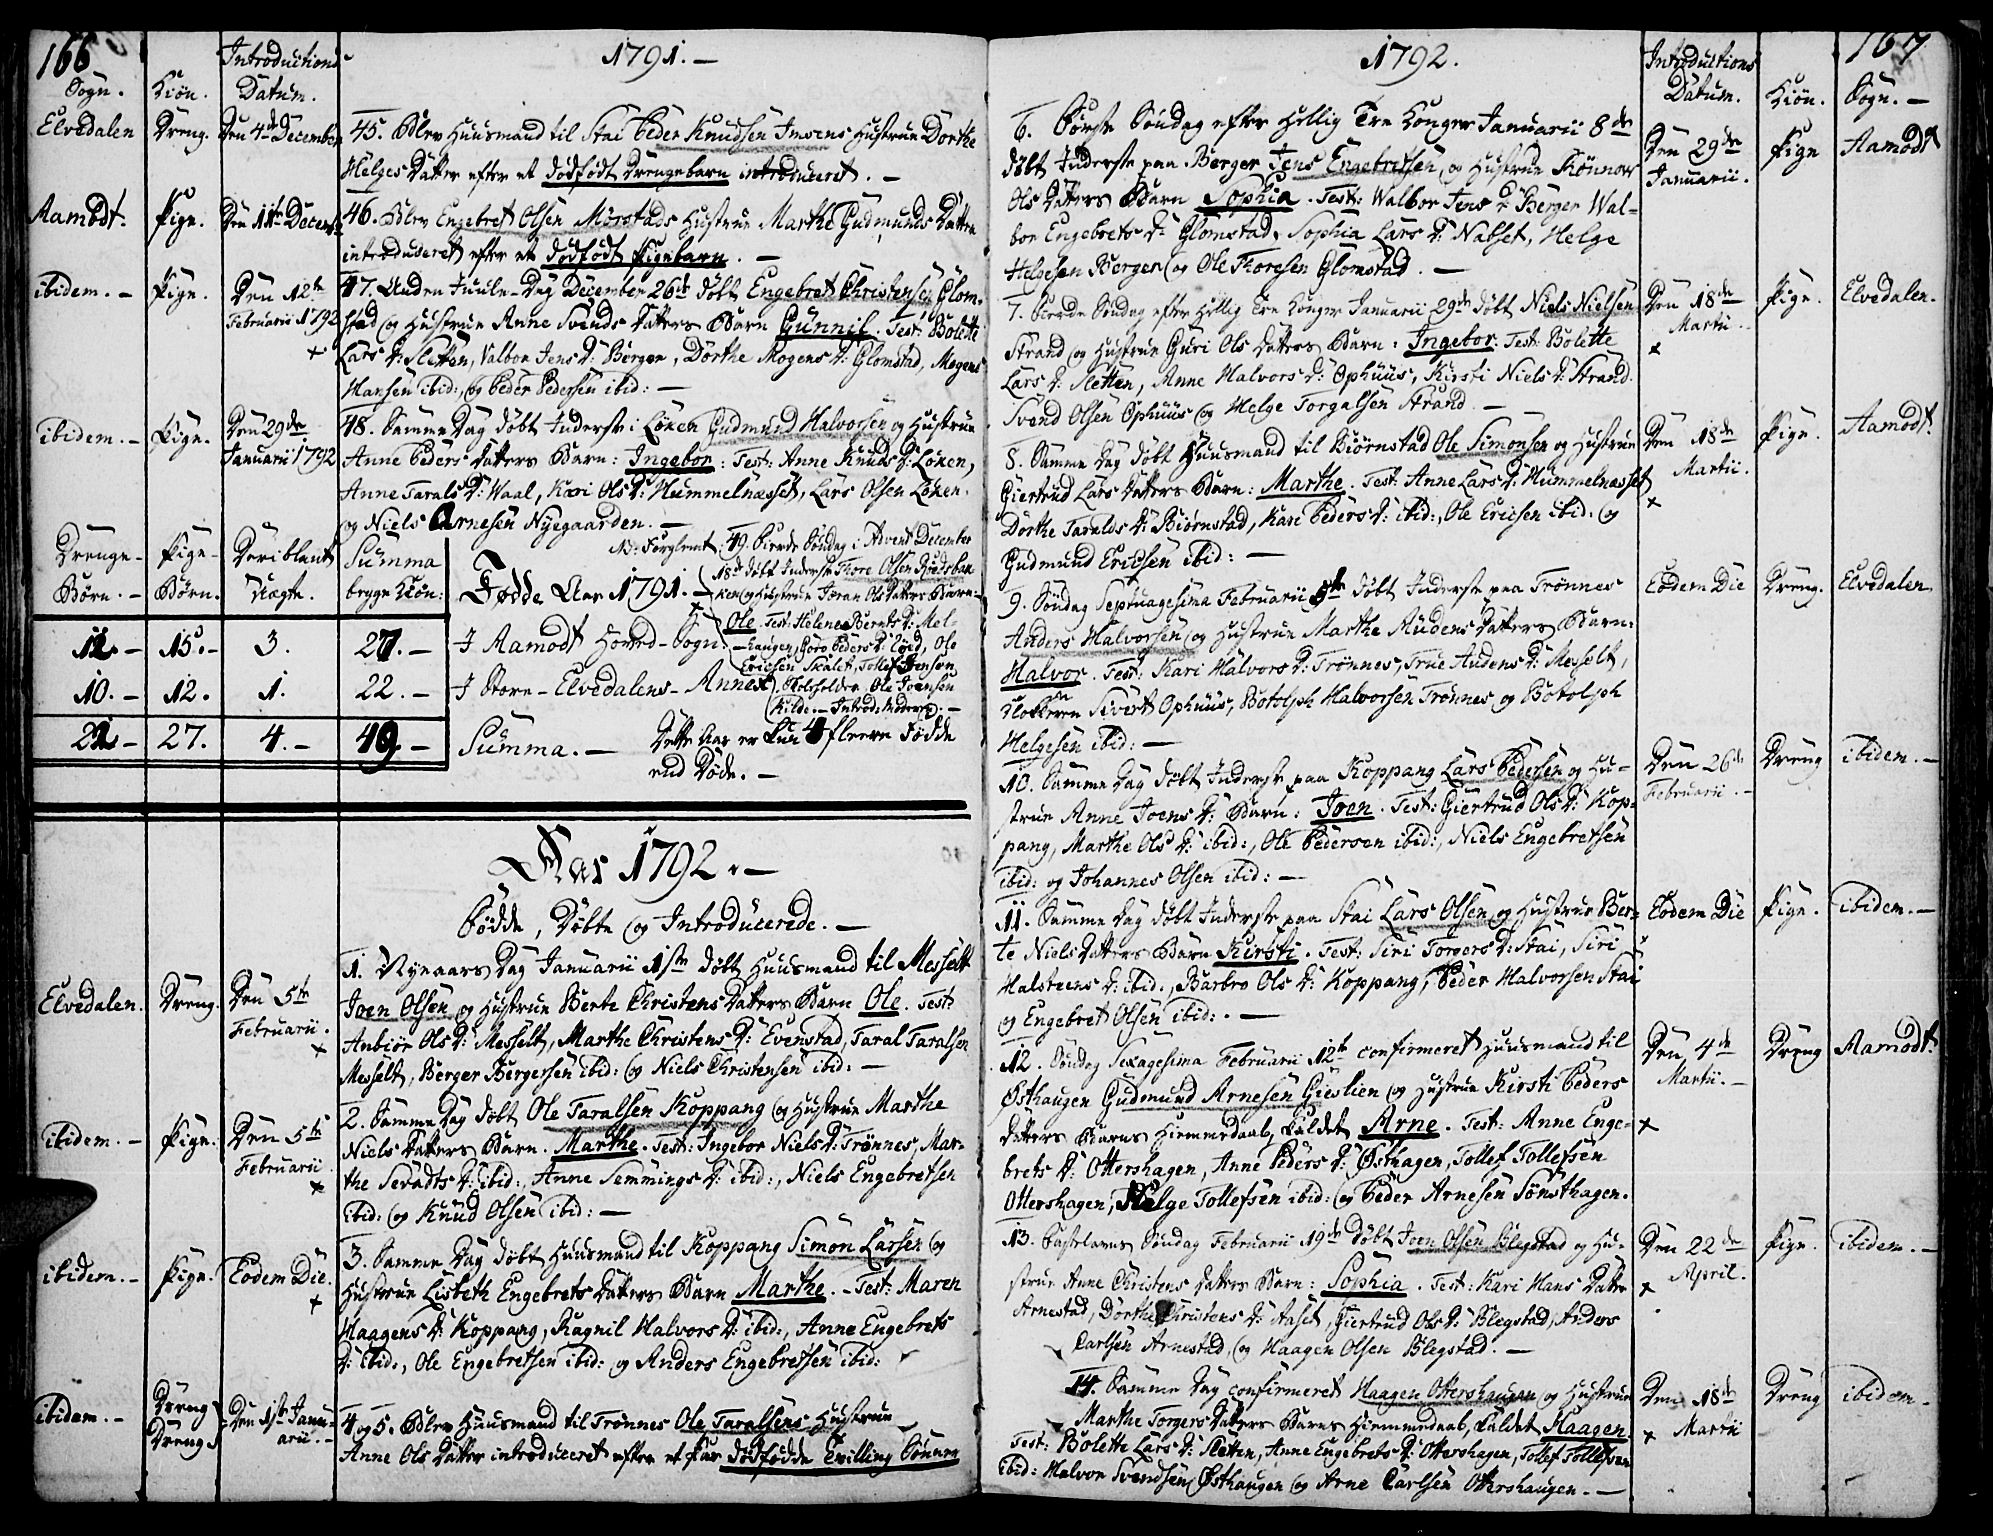 166
1791. —
Sogn. Kiön. Introductions Datum.
Elvedalen Dreng. Den 4de December
45. Blev Huusmand til Stai Peder Knudsen Imsens Hustrue Dorthe
Helges Datter efter et dødfødt Drengebarn introduceret. —
Aamodt. Pige. Den 11te Decem
46. Blev Engebret Olsen Mörstads Hustrue Marthe Gudmunds Datter
introduceret efter et dødfødt Pigebarn. —
ibidem. — Pige. Den 12te Februarii 1792
47. Anden Juule-Dag December 26de døbt Engebret Christensen Glom-
stad og Hustrue Anne Svends Datters Barn Gunnil. Test: Bolette
Lars D: Sletten, Valbor Jens D: Bergen, Dorthe Mogens D: Glomstad, Mogens
Hansen ibid:, og Peder Pedersen ibid: —
ibidem. — Pige. Den 29de Januarii 1792
48. Samme Dag døbt Inderste i Löken Gudmund Halvorsen og Hustrue
Anne Peders Datters Barn: Ingebor: Test: Anne Knuds D: Löken,
Anne Tarals D: Waal, Kari Ols D: Hummelnæsset, Lars Olsen Löken.
og Niels Arnesen Nyegaarden. —
NB: Forglemt: 49. Fierde Söndag i Advent December
18de døbt Inderste Thore Olsen Rudsbak-
ken og Hustrue Jöran Ols Datters Barn
Ole. Test: Helene Bernts D: Mel-
haugen, Goro Peders D: Löid, Ole
Ericsen Skalet, Tollef Jensen
Skibsholde, Ole Joensen
Kilde. — Introd: Moderen. —
Drenge- Börn. — Pige- Börn. Deriblant Uægte. Summa begge Kiön: Fødde Aar 1791. —
12. — 15. — 3. 27. — I Aamodt Hoved-Sogn.
10. — 12. 1. 22. — I Store-Elvedalens-Annex
22 — 27. 4. — 49. — Summa. — Dette Aar er kun 4 fleere Fødde
end Døde. —
Aar 1792. —
Fødde, Døbte og Introducerede. —
Elvedalen. Dreng. Den 5te Februarii.
1. Nyeaars Dag Januarii 1ste døbt Huusmand til Messelt
Joen Olsen og Hustrue Berte Christens Datters Barn Ole. Test:
Anbiör Ols D: Messelt, Marthe Christens D: Evenstad, Taral Taralsen
Messelt, Berger Bergersen ibid: og Niels Christensen ibid: —
ibidem. — Pige. Den 5te Februarii
2. Samme Dag døbt Ole Taralsen Koppang og Hustrue Marthe
Niels Datters Barn. Marthe. Test: Ingebor Niels D: Trönnes, Mar-
the Sevadts D: ibid:, Anne Semmings D: ibid:, Niels Engebretsen
ibid: og Knud Olsen ibid: —
ibidem. — Pige. Eodem Die.
3. Samme Dag døbt Huusmand til Koppang Simon Larsen og
Hustrue Lisbeth Engebrets Datters Barn Marthe. — Test: Maren
Haagens D: Koppang, Ragnil Halvors D: ibid:, Anne Engebrets
D: ibid:, Ole Engebretsen ibid: og Anders Engebretsen ibid:
ibidem. — Dreng Dreng Den 1ste Januarii. —
4 og 5. Blev Huusmand til Trönnes Ole Taralsens Hustrue
Anne Ols Datter introduceret efter et Par dødfødde Tvilling Sönner
1792.
167
Introductions Datum. Kiön. Sogn. —
6. Förste Söndag efter Hellig Tre Konger Januarii 8de
døbt Inderste paa Berger Jens Engebretsen, og Hustrue Kiönnov
Ols Datters Barn Sophia. Test: Walbor Jens D: Berger Wal-
bor Engebrets D: Glomstad, Sophia Lars D: Nabset, Helge
Helgesen Bergen og Ole Thoresen Glomstad. —
Den 29de Januarii. Pige Aamodt
7. Fierde Söndag efter Hellig Tre Konger Januarii 29de døbt Niels Nielsen
Strand og Hustrue Guri Ols Datters Barn: Ingebor: Test: Bolette
Lars D: Sletten, Anne Halvors D: Ophuus, Kirsti Niels D: Strand.
Svend Olsen Ophuus og Helge Torgalsen Strand. —
Den 18de Martii. Pige. Elvedalen.
8. Samme Dag døbt Huusmand til Biörnstad Ole Simonsen og Hustrue
Giertrud Lars Datters Barn: Marthe. Test: Anne Lars D: Hummelnæsset
Dorthe Taralds D: Biörnstad, Kari Peders D: ibid:, Ole Ericsen ibid: og
Gudmund Ericsen ibid: —
Den 18de Martii. Pige. Aamodt.
9. Söndag Septuagesima Februarii 5te døbt Inderste paa Trönnes
Anders Halvorsen og Hustrue Marthe Audens Datters Barn:
Halvor. Test: Kari Halvors D: Trönnes, True Audens D: Messelt,
Klokkeren Sivert Ophuus, Botolph Halvorsen Trönnes og Botolph
Helgesen ibid: —
Eodem Die Dreng. Elvedalen
10. Samme Dag døbt Inderste paa Koppang Lars Pedersen og Hu-
strue Anne Joens D: Barn: Joen. Test: Giertrud Ols D: Kop-
pang, Marthe Ols D: ibid:, Ole Pedersen ibid:, Niels Engebretsen
ibid: og Johannes Olsen ibid: —
Den 26de Februarii. — Dreng ibidem. —
11. Samme Dag døbt Inderste paa Stai Lars Olsen og Hustrue Ber-
te Niels Datters Barn Kirsti. Test: Siri Torgers D: Stai, Siri
Halsteens D: ibid:, Barbro Ols D: Koppang, Peder Halvorsen Stai
og Engebret Olsen ibid:. —
Eodem Die Pige. ibidem. —
12. Söndag Sexagesima Februarii 12te confirmeret Huusmand til
Østhaugen Gudmund Arnesen Gieslien og Hustrue Kirsti Peders
Datters Barns Hiemmedaab, kaldet Arne. Test: Anne Enge-
brets D: Ottershagen, Anne Peders D: Østhagen, Tollef Tollefsen
Ottershagen, Helge Tollefsen ibid: og Peder Arnesen Sönsthagen.
Den 4de Martii. — Dreng Aamodt.
13. Fastelavns Söndag Februarii 19de døbt Joen Olsen Blegstad og Hu-
strue Anne Christens Datters Barn: Sophia. Test: Kari Hans Datter
Arnestad, Dorthe Christens D: Aaset, Giertrud Ols D: Blegstad, Anders
Carlsen Arnestad, og Haagen Olsen Blegstad. —
Den 22de April. Pige. ibidem. —
14. Samme Dag confirmeret Haagen Ottershaugen og Hustrue
Marthe Torgers Datters Barns Hiemmedaab, kaldet Haagen.
Test: Bolette Lars D: Sletten, Anne Engebrets D: Ottershagen, Tollef Tollefsen
ibid: Halvor Svendsen Østhaugen og Arne Carlsen Ottershaugen. —
Den 18de Martii Dreng ibidem.